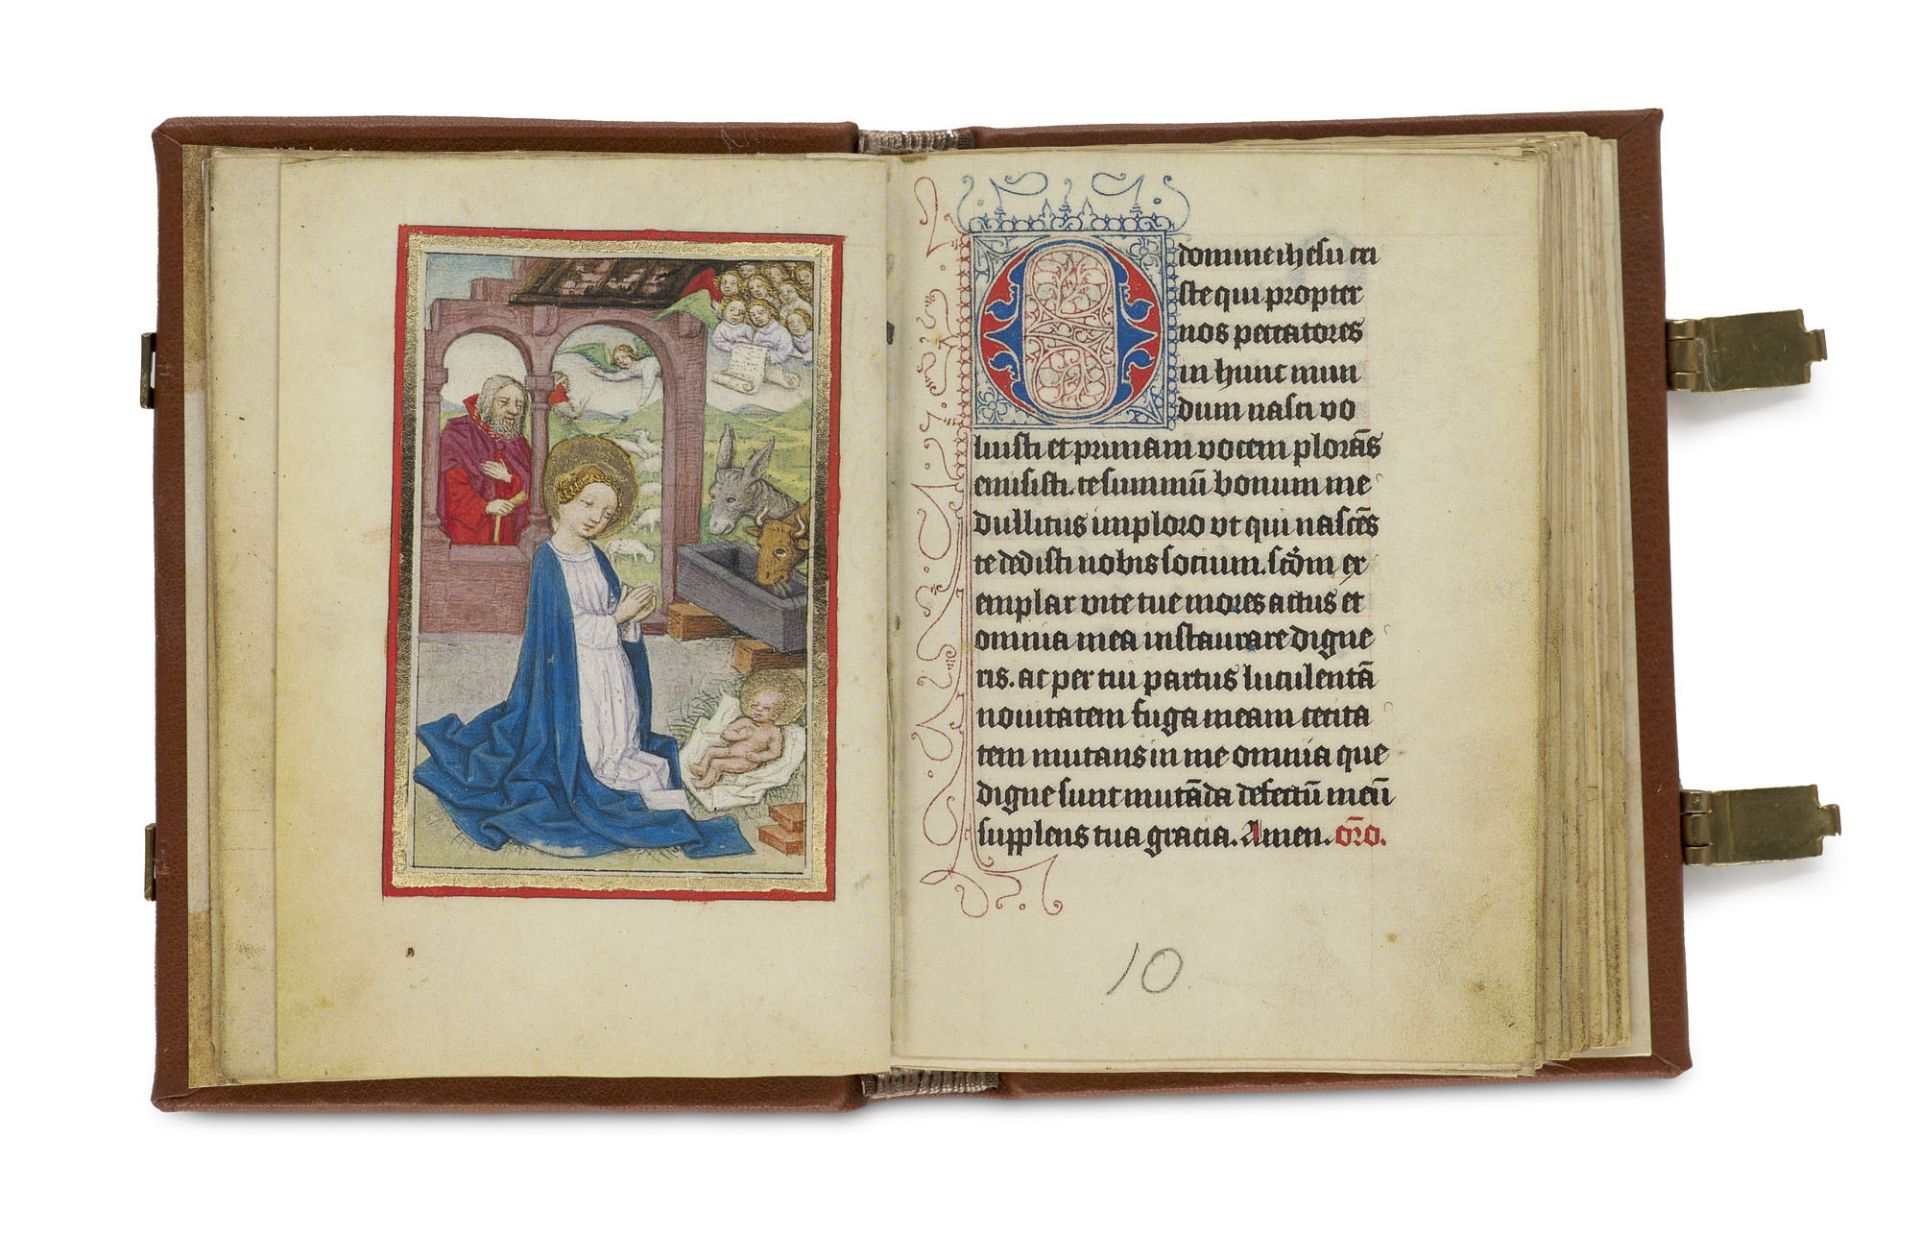 O domine ihesu cri
ste qui propter
nos peccatores
in hunc mun
dum nasci vo
luisti et primam vocem plorãs
emisisti. te summũ bonum me
dullitus imploro vt qui nascẽs
te dedisti nobis socium. scđm ex
emplar vite tue mores actus et
omnia mea instaurare digne
ris. ac per tui partus luculentã
nouitatem fuga meam cecita
tem mutans in me omnia que
digne sunt mutãda defectũ meũ
supplens tua gracia. Amen. oro.
10